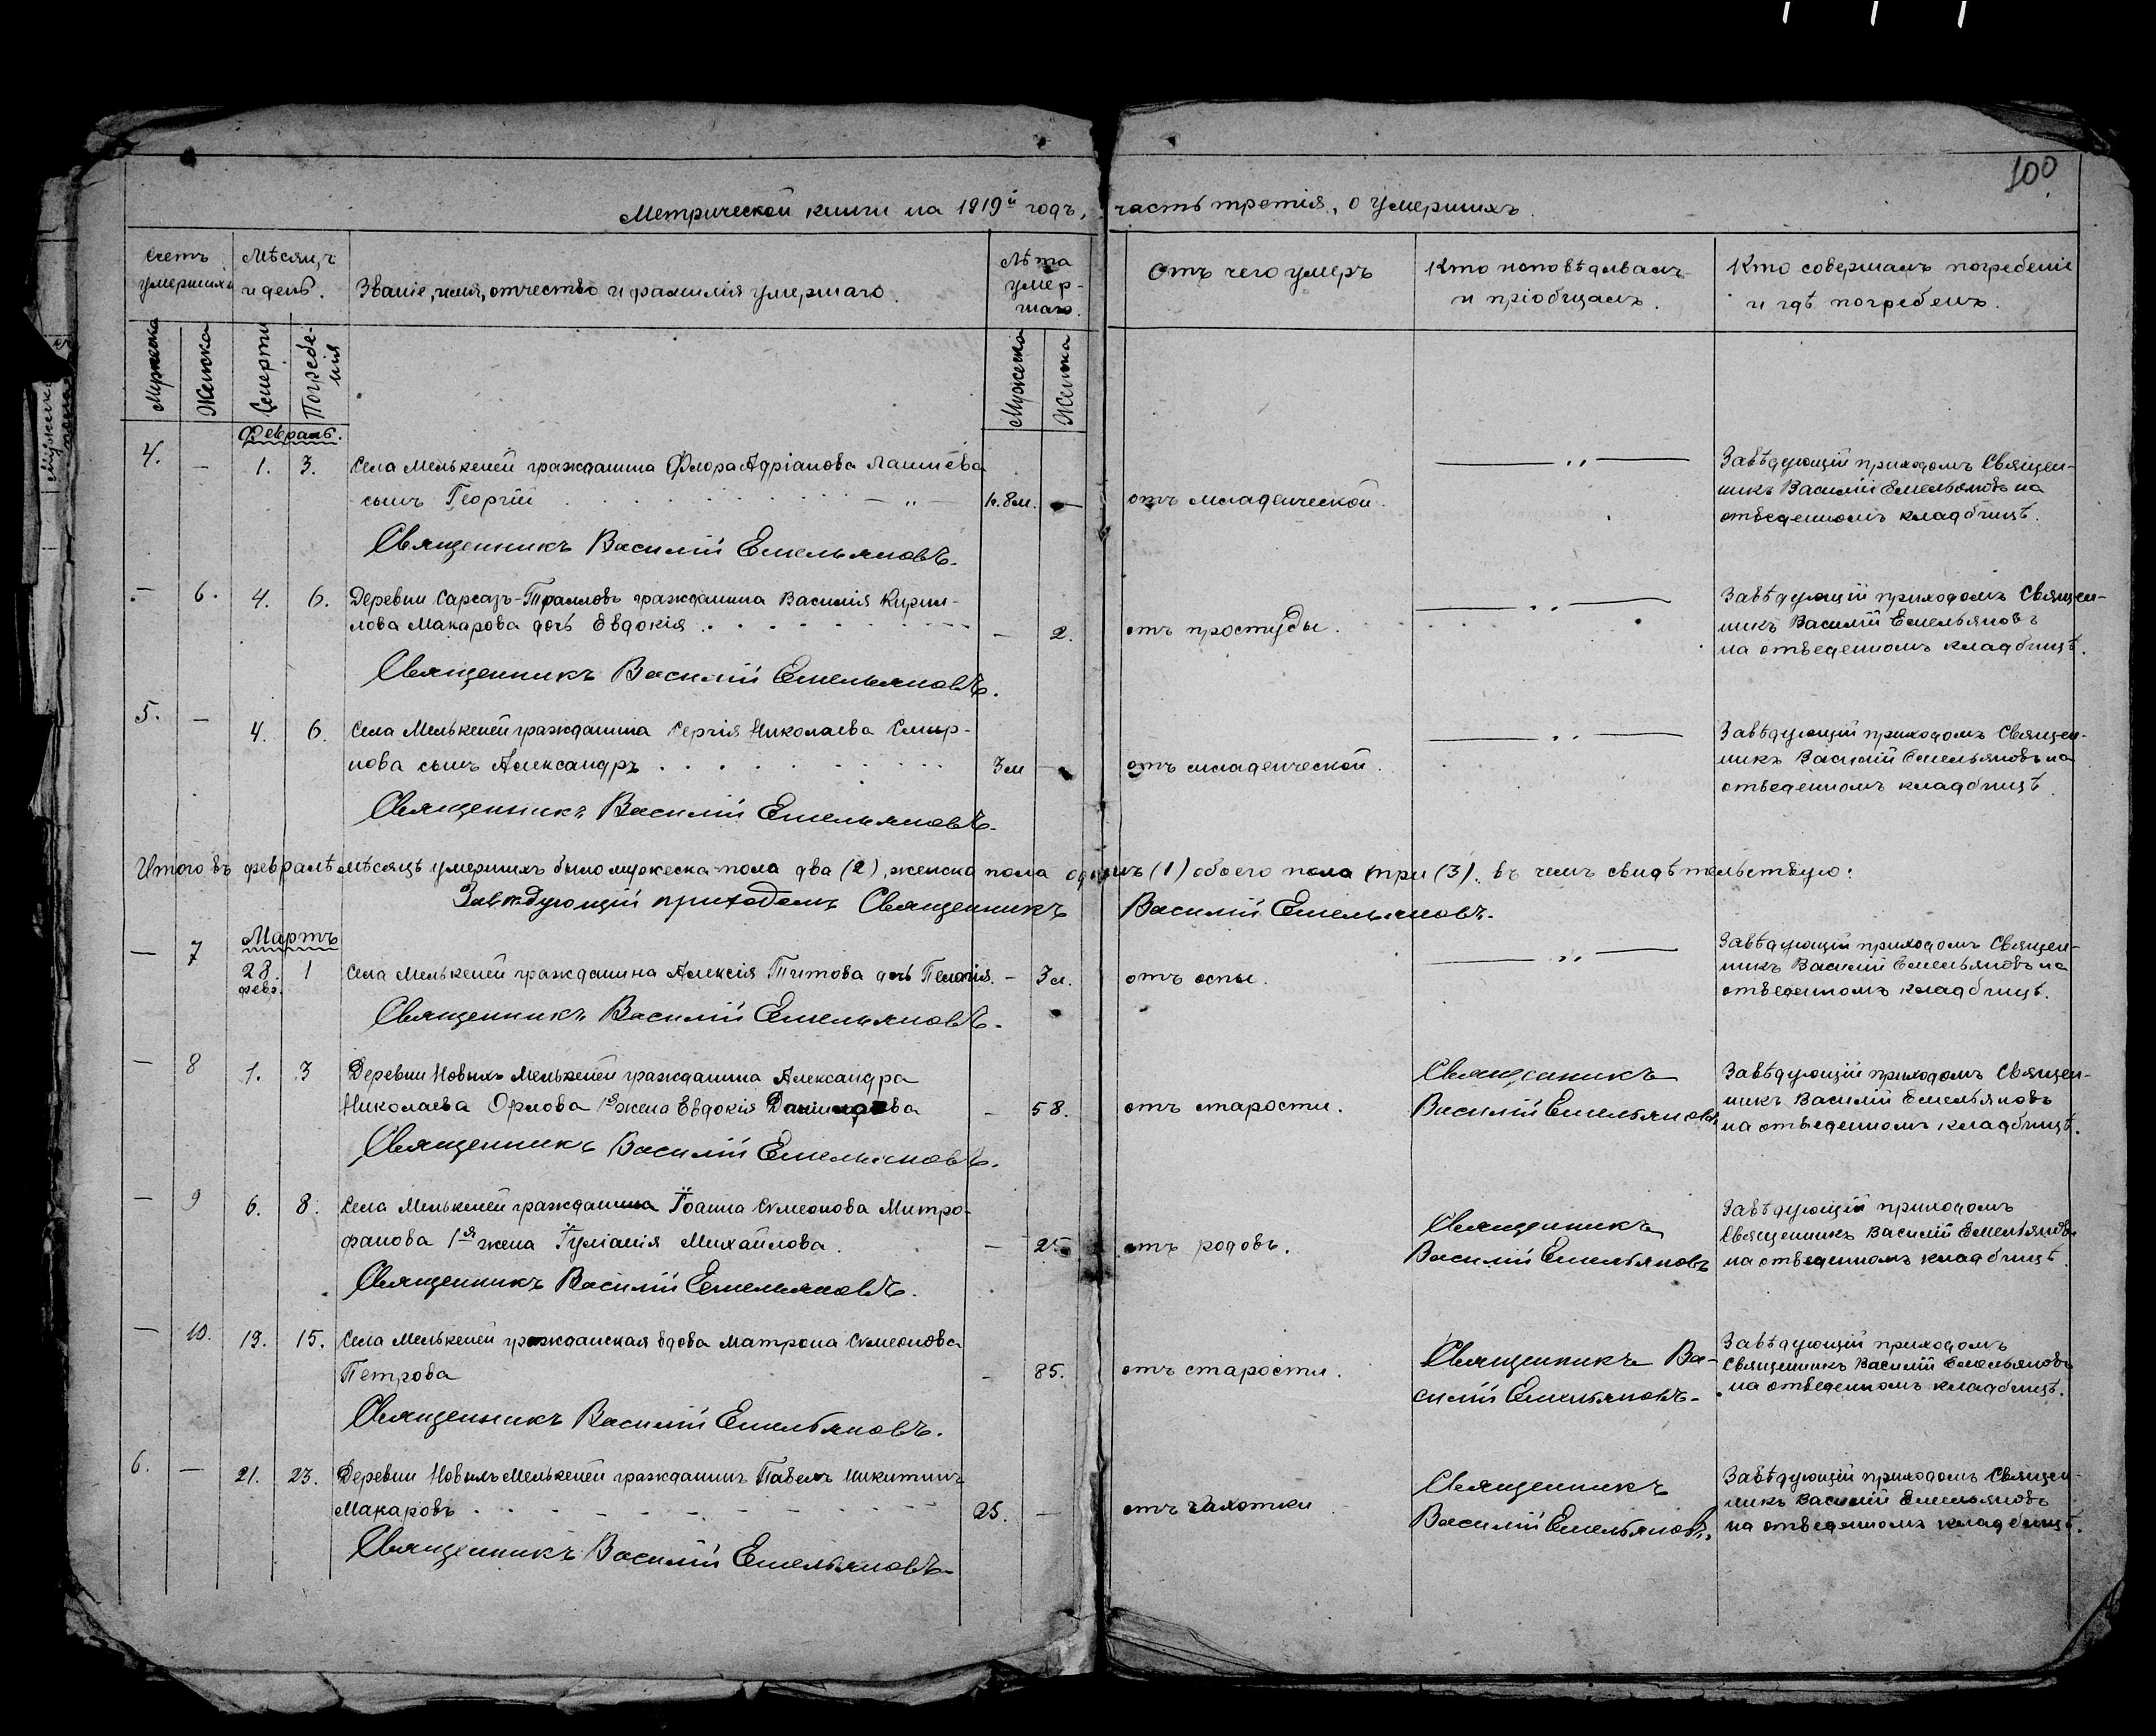 100
Метрической книги на 1919й годъ, часть третія, о умершихъ.
Счетъ умершихъ
Мѣсяцъ и день.
Званіе, имя, отчество и фамилія умершаго.
Лѣта умер-
шаго.
Отъ чего умеръ
Кто исповѣдывалъ
и пріобщалъ.
Кто совершалъ погребеніе
и гдѣ погребенъ.
Мужска
Женска
Смерти
Погребе-
нія
Мужеска
Женска
Февраль.
4. — 1. 3. Села Мелькеней гражданина Флора Адріанова
сынъ Георгій 8м. — отъ младенческой. — „ — Завѣдующій приходомъ Священ-
никъ Василій Емельяновъ на
отведенномъ кладбищѣ.
Священникъ Василій Емельяновъ.
— 6. 4. 6. Деревни Сарсазъ- гражданина Василія Кирил-
лова Макарова дочь Евдокія — 2. отъ простуды. — „ — Завѣдующій приходомъ Священ-
никъ Василій Емельяновъ
на отведенномъ кладбищѣ.
Священникъ Василій Емельяновъ.
5. — 4. 6. Села Мелькеней гражданина Сергія Николаева Смир-
нова сынъ Александръ 3м — отъ младенческой. — „ — Завѣдующій приходомъ Священ-
никъ Василій Емельяновъ на
отведенномъ кладбищѣ.
Священникъ Василій Емельяновъ.
Итого въ февралѣ мѣсяцѣ умершихъ было мужеска пола два (2), женска пола одинъ (1) обоего пола три (3). въ чемъ свидѣтельствую:
Завѣдующій приходомъ Священникъ Василій Емельяновъ.
Мартъ
— 7 28. февр. 1 Села Мелькеней гражданина Алексія Титова дочь Пелагія. — 3м. отъ оспы. — „ — Завѣдующій приходомъ Священ-
никъ Василій Емельяновъ на
отведенномъ кладбищѣ.
Священникъ Василій Емельяновъ.
— 8 1. 3 Деревни Новыхъ Мелькеней гражданина Александра
Николаева Орлова 1я жена Евдокія — 58. отъ старости. Священникъ
Василій Емельяновъ. Завѣдующій приходомъ Священ-
никъ Василій Емельяновъ
на отведенномъ кладбищѣ.
Священникъ Василій Емельяновъ.
— 9 6. 8. Села Мелькеней гражданина Іоанна Симеонова Митро-
фанова 1я жена Іуліанія Михайлова. — 25 отъ родовъ. Священникъ
Василій Емельяновъ Завѣдующій приходомъ
Священникъ Василій Емельяновъ
на отведенномъ кладбищѣ.
Священникъ Василій Емельяновъ.
— 10. 13. 15. Села Мелькеней гражданская вдова Матрона Симеонова
Петрова — 85. отъ старости. Священникъ Ва-
силій Емельяновъ. Завѣдующій приходомъ
Священникъ Василій Емельяновъ
на отведенномъ кладбищѣ.
Священникъ Василій Емельяновъ.
6. — 21. 23. Деревни Новыхъ Мелькеней гражданинъ Павелъ Никитинъ
Макаровъ 25. — отъ чахотки Священникъ
Василій Емельяновъ. Завѣдующій приходомъ Священ-
никъ Василій Емельяновъ
на отведенномъ кладбищѣ.
Священникъ Василій Емельяновъ.